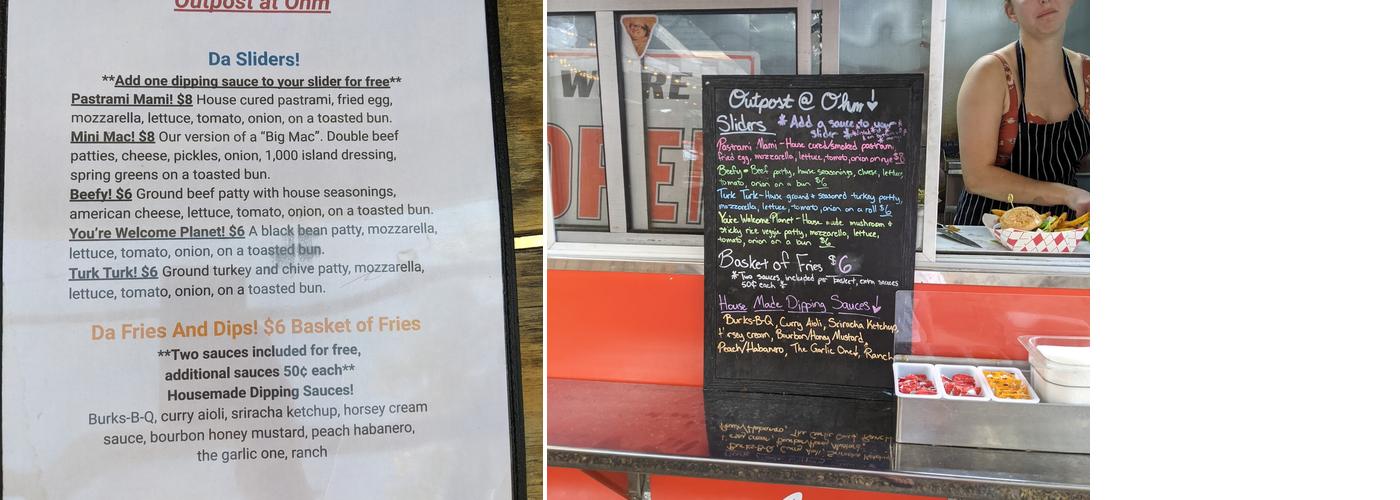 Outpost at Ohm
Da Sliders!
**Add one dipping sauce to your slider for free**
Pastrami Mami! $8 House cured pastrami, fried egg,
mozzarella, lettuce, tomato, onion, on a toasted bun.
Mini Mac! $8 Our version of a “Big Mac”. Double beef
patties, cheese, pickles, onion, 1,000 island dressing,
spring greens on a toasted bun.
Beefy! $6 Ground beef patty with house seasonings,
american cheese, lettuce, tomato, onion, on a toasted bun.
You’re Welcome Planet! $6 A black bean patty, mozzarella,
lettuce, tomato, onion, on a toasted bun.
Turk Turk! $6 Ground turkey and chive patty, mozzarella,
lettuce, tomato, onion, on a toasted bun.
Da Fries And Dips! $6 Basket of Fries
**Two sauces included for free,
additional sauces 50¢ each**
Housemade Dipping Sauces!
Burks-B-Q, curry aioli, sriracha ketchup, horsey cream
sauce, bourbon honey mustard, peach habanero,
the garlic one, ranch
WE'RE
OPEN
Outpost @ Ohm
Sliders * Add a sauce to your
slider
Pastrami Mami - House cured/smoked pastrami
fried egg, mozzarella, lettuce, tomato, onion on rye $8
Beefy - Beef patty, house seasonings, cheese, lettuce,
tomato, onion on a bun $6
Turk Turk - House ground & seasoned turkey patty,
mozzarella, lettuce, tomato, onion on a roll $6
You're Welcome Planet - House made mushroom &
sticky rice veggie patty, mozzarella, lettuce,
tomato, onion on a bun $6
Basket of Fries $6
* Two sauces included per basket, extra sauces
50¢ each *
House Made Dipping Sauces
Burks-B-Q, Curry Aioli, Sriracha Ketchup,
Horsey cream, Bourbon/Honey Mustard,
Peach/Habanero, The Garlic One!, Ranch